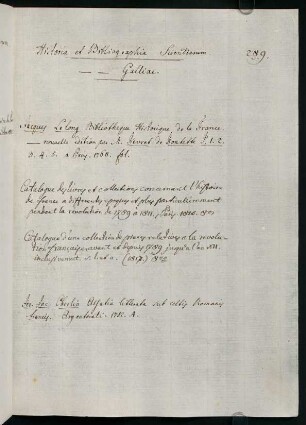 Historia et Bibliographia Scientiarum
289.
— — Galliae.
Jacques Le Long Bibliothèque Historique de la France
— nouvelle édition par M. Fevret de Fontette T. 1. 2.
3. 4. 5. a Paris. 1768. fol.
Catalogue des livres et collections concernant l'histoire
de France a differentes epoques et plus particulierement
pendant la revolution de 1789 a 1811. Paris.
Catalogue d'une collection de pieces relatives a la revolu-
tion française, avant et depuis 1789 jusqu'à l'an
inclusivement. s. l. et a. (1817)
Alsatia litterata sub Celtis Romanis
Francis. Argentorati.